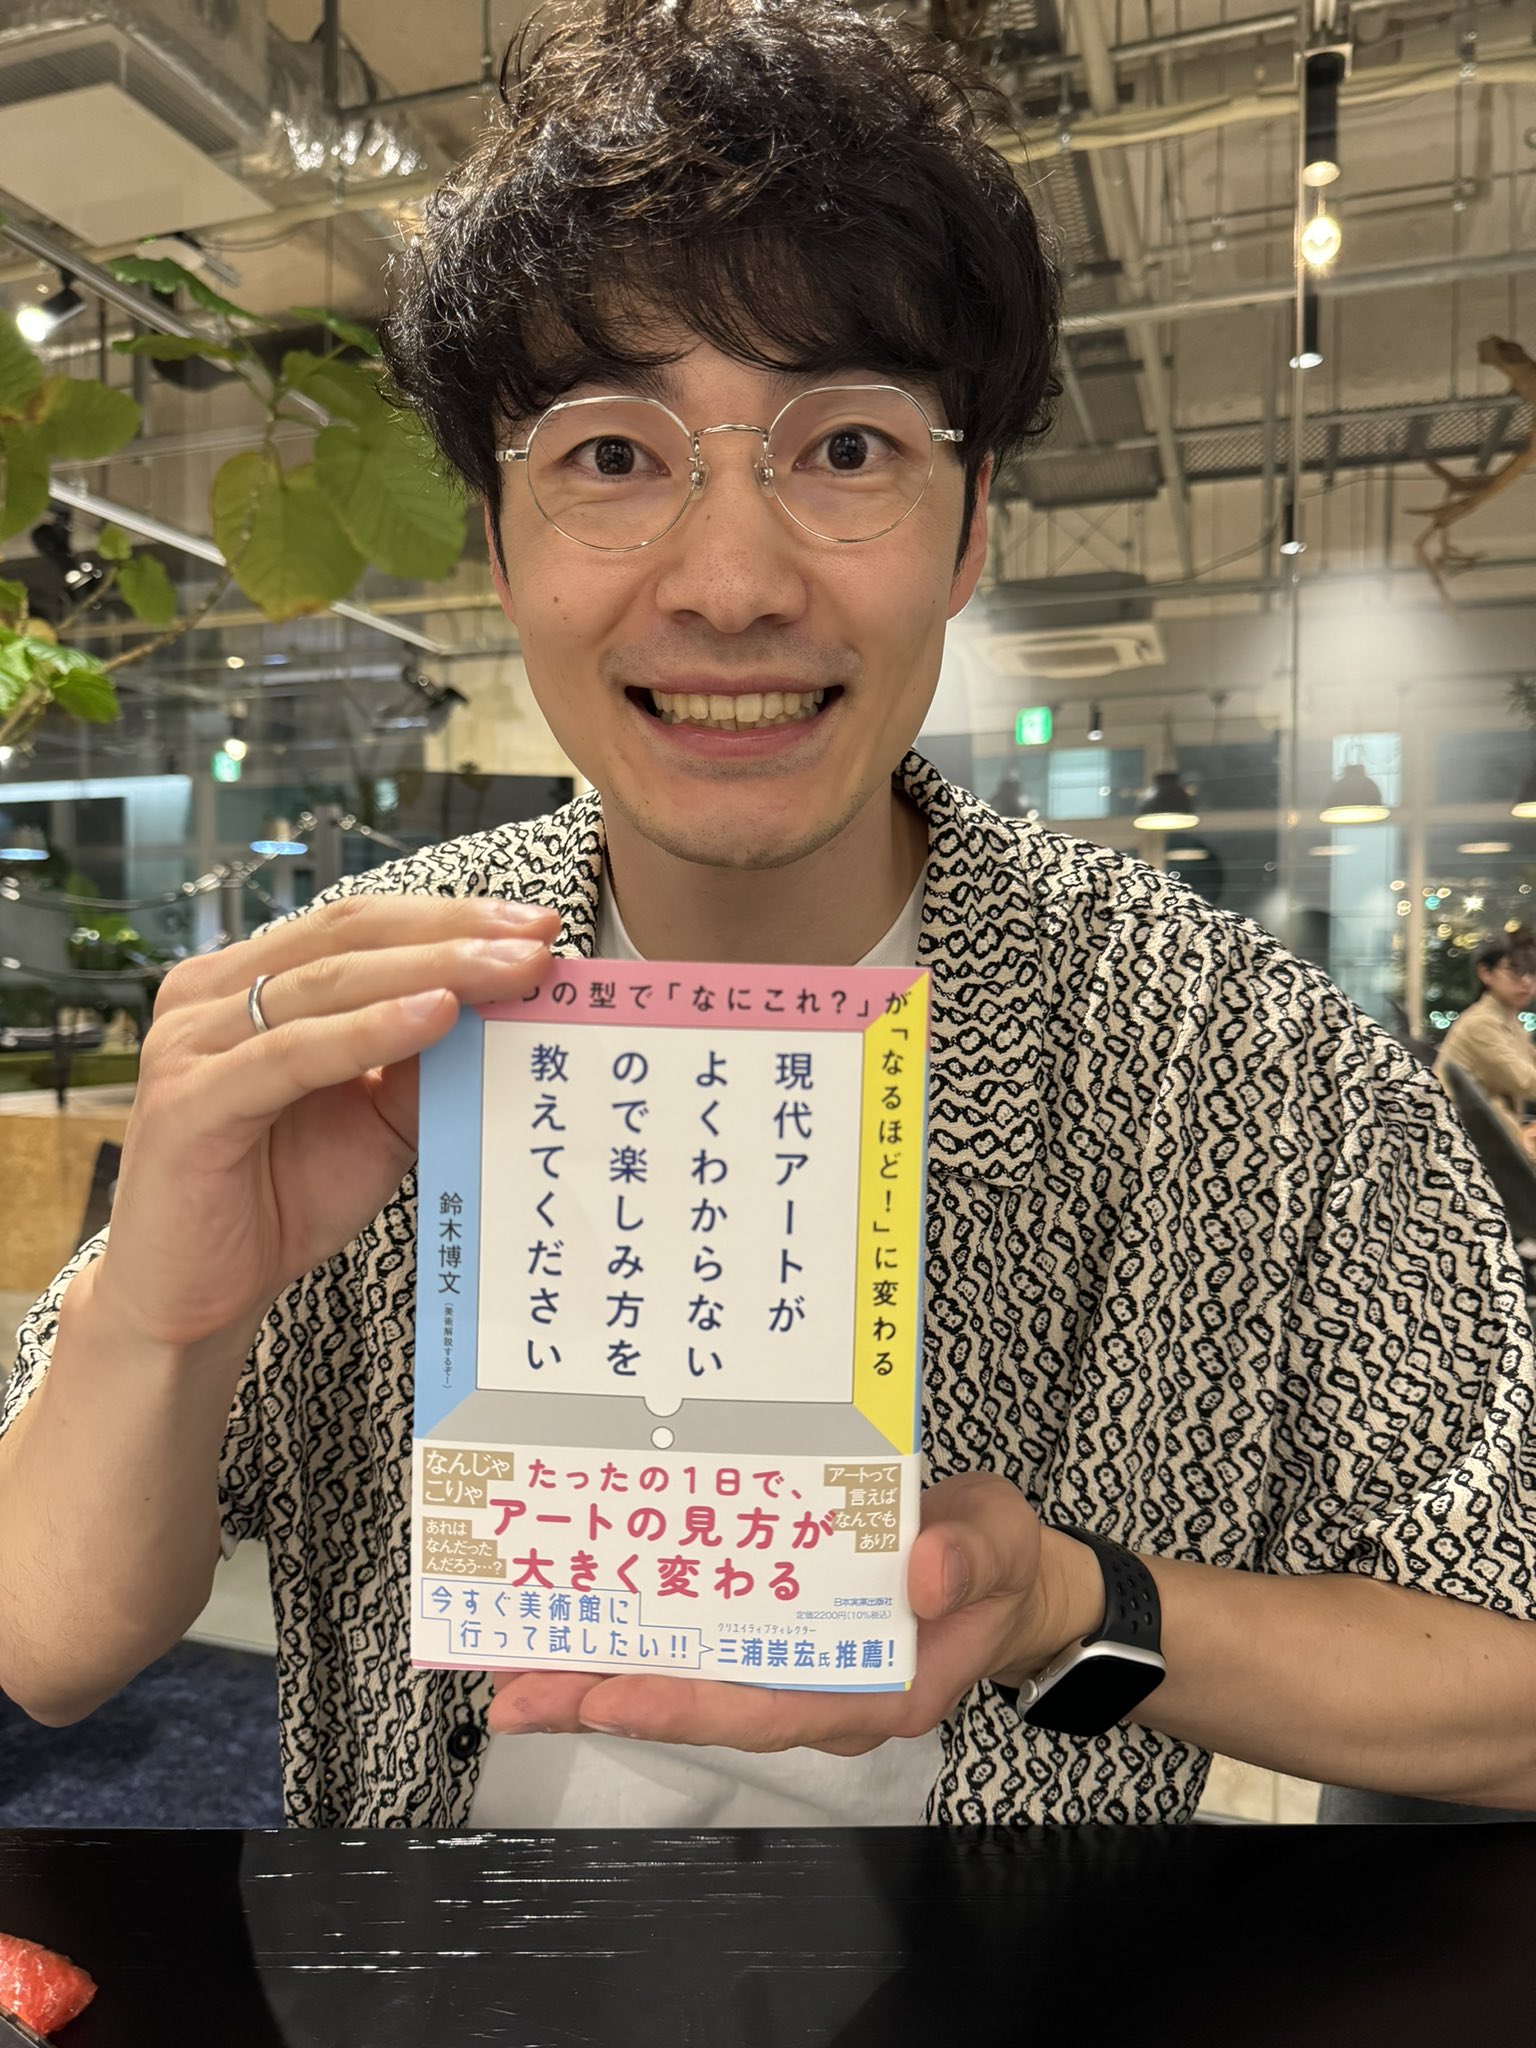 つの型で「なにこれ？」が
「なるほど！」に変わる
現代アートが
よくわからない
ので楽しみ方を
教えてください
鈴木博文
（美術解説するぞー）
なんじゃ
こりゃ
たったの1日で、
アートの見方が
大きく変わる
アートって
言えば
なんでも
あり？
あれは
なんだった
んだろう…？
日本実業出版社
定価2200円（10%税込）
今すぐ美術館に
行って試したい！！
クリエイティブディレクター
三浦崇宏氏 推薦！